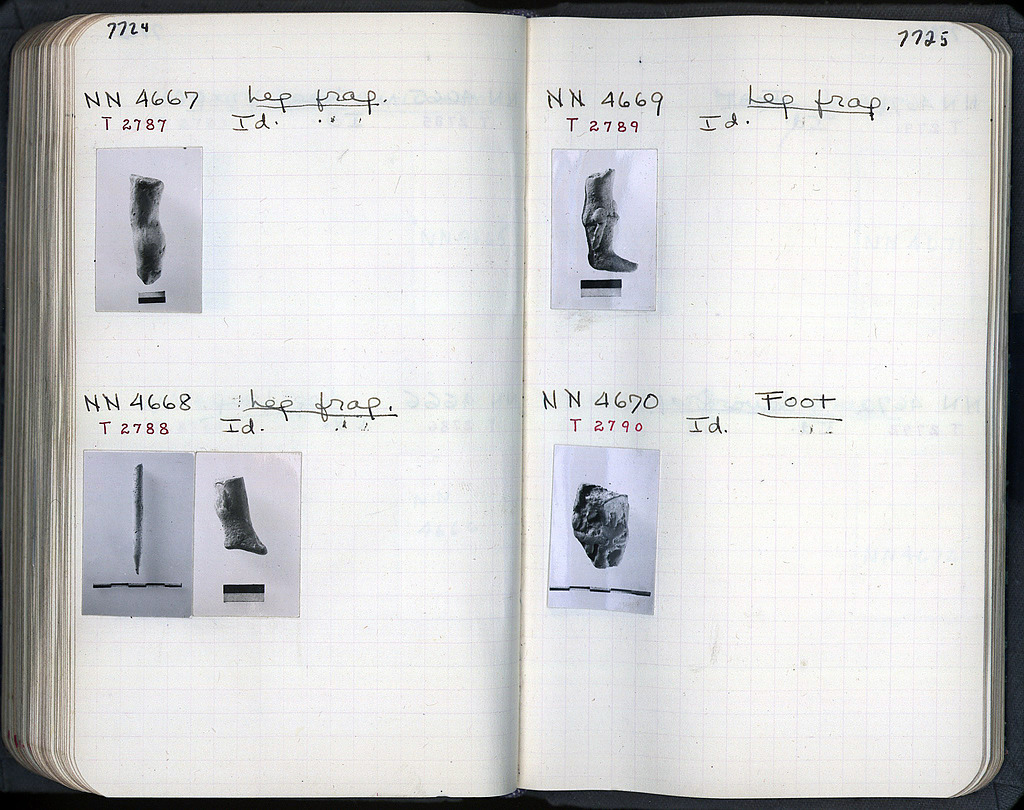 7724
NN 4667 Leg frag.
T 2787 Id.
NN 4668 Leg frag.
T 2788 Id.
7725
NN 4669 Leg frag.
T 2789 Id.
NN 4670 Foot
T 2790 Id.